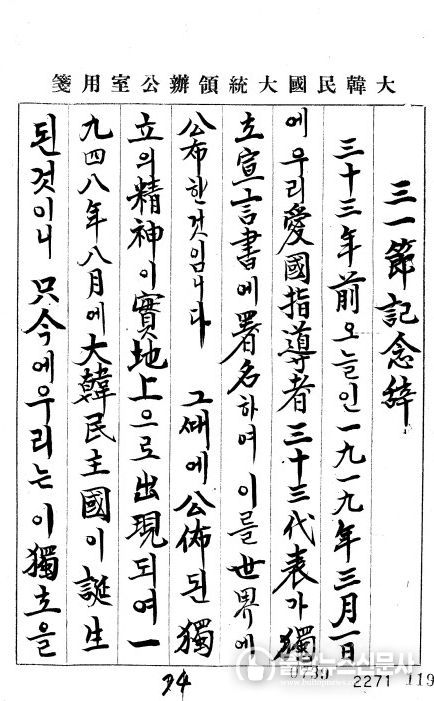 大韓民國大統領辦公室用箋
三一節記念辞
三十三年前오늘인一九一九年三月一日
에우리愛國指導者三十三代表가獨
立宣言書에署名하여이를世界에
公布한것임니다 그때에公佈된獨
立의精神이實地上으로出現되여一
九四八年八月에大韓民主國이誕生
된것이니 只今에우리는이獨立을
94
2271 119